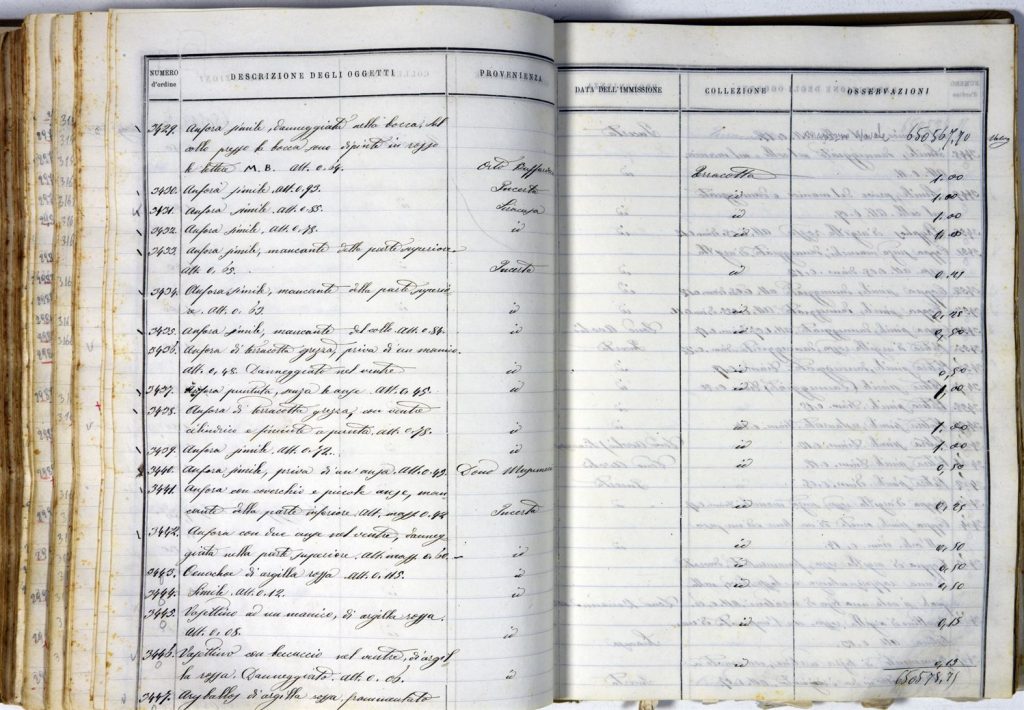 NUMERO d'ordine DESCRIZIONE DEGLI OGGETTI PROVENIENZA DATA DELL'IMMISSIONE COLLEZIONE OSSERVAZIONI
650567,70
3429. Anfora simile, danneggiata nella bocca; sul
collo presso la bocca sono dipinte in rosso
le lettere M.B. Alt. 0.54. Terracotta 1.00
3430. Anfora simile. Alt. 0.93. Incerta id 1.00
3431. Anfora simile. Alt. 0.85. Siracusa id 1.00
3432. Anfora simile. Alt. 0.78. id id 1.00
3433. Anfora simile, mancante della parte superiore
Alt. 0,65. Incerta id
3434. Anfora simile, mancante della parte superio
re. Alt. 0.63. id id
3435. Anfora simile, mancante del collo. Alt. 0.84. id id 0,50
3436. Anfora di terracotta grezza, priva di un manico.
Alt. 0,48. Danneggiata nel ventre id id 0,50
3437. Anfora puntuta, senza le anse. Alt. 0.45. id id 1,00
3438. Anfora di terracotta grezza, con ventre
cilindrico e finiente a punta. Alt. 0.78. id id 1.00
3439. Anfora simile. Alt. 0.72. id id 1.00
3440. Anfora simile, priva di un'ansa. Alt. 0.49. Dono id 0,50
3441. Anfora con coverchio e piccole anse, man
cante della parte inferiore. Alt. mass. 0.42 Incerta id 0,25
3442. Anfora con due anse nel ventre, danneg
giata nella parte superiore. Alt. mass. 0.60. id id 0,50
3443. Oinochoe di argilla rossa. Alt. 0.115. id id 0,50
3444. Simile. Alt. 0.12. id id 0,50
3445. Vasettino ad un manico, di argilla rossa.
Alt. 0.08. id id 0,15
3446. Vasettino con beccuccio nel ventre, di argil
la rossa. Danneggiato. Alt. 0.05. id id 0,15
650575,75
3447. Aryballos di argilla rossa, frammentato